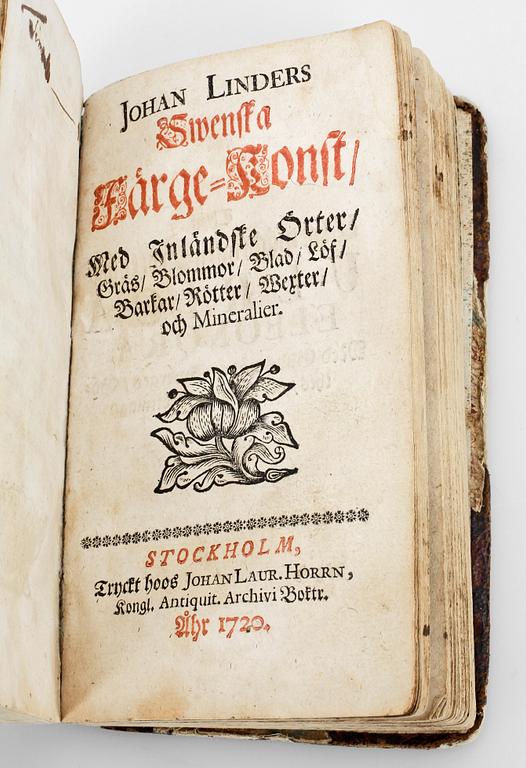 JOHAN LINDERS
Swenska
Färge=Konst/
Med Inländske Örter/
Gräs/ Blommor/ Blad/ Löf/
Barkar/ Rötter/ Wexter/
och Mineralier.
STOCKHOLM,
Tryckt hoos JOHAN LAUR. HORRN,
Kongl. Antiquit. Archivi Boktr.
Åhr 1720.